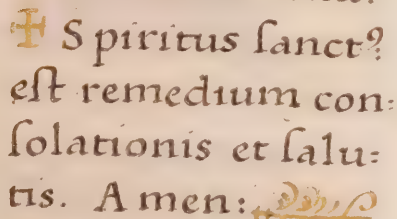 ✠ Spiritus ſanctꝰ
eſt remedium con:
ſolationis et ſalu:
tis. Amen: